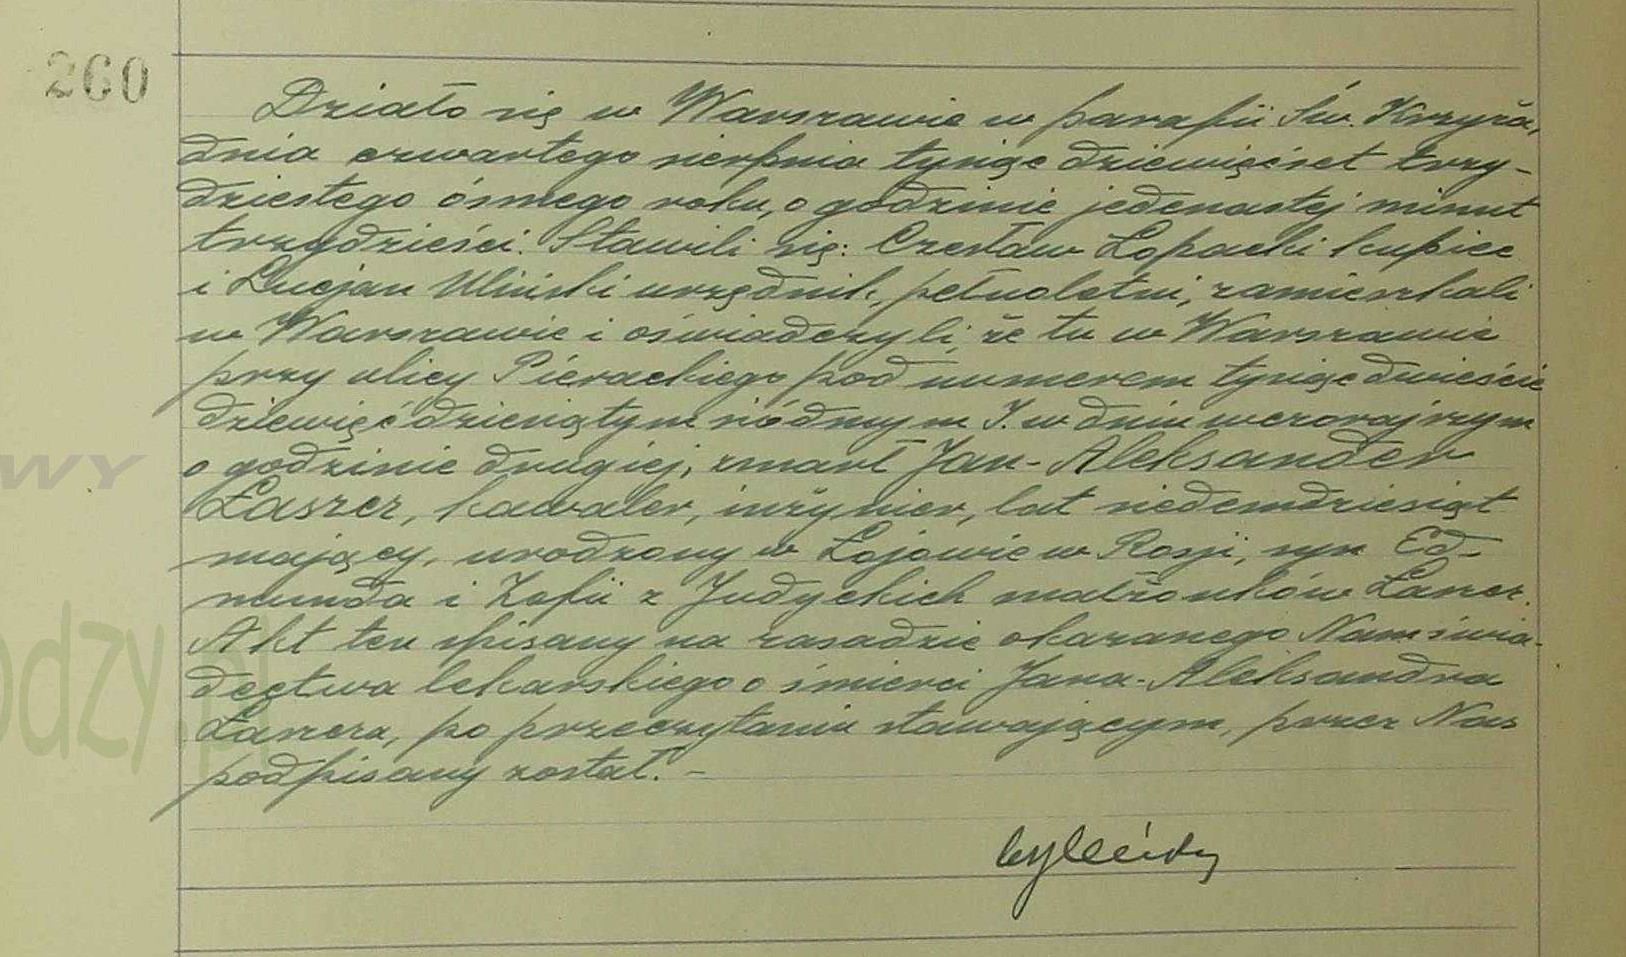 260
Działo się w Warszawie w parafii Św. Krzyża,
dnia czwartego sierpnia tysiąc dziewięćset trzy-
dziestego ósmego roku, o godzinie jedenastej minut
trzydzieści. Stawili się: Czesław Łopacki kupiec
i Lucjan Uliński urzędnik, pełnoletni, zamieszkali
w Warszawie i oświadczyli, że tu w Warszawie
przy ulicy Pierackiego pod numerem tysiąc dwieście
dziewięćdziesiątym siódmym J. w dniu wczorajszym
o godzinie drugiej, zmarł Jan-Aleksander
Łaszcz, kawaler, inżynier, lat siedemdziesiąt
mający, urodzony w Łojowie w Rosji, syn Ed-
munda i Zofii z Judyckich małżonków Łaszcz.
Akt ten spisany na zasadzie okazanego Nam świa-
dectwa lekarskiego o śmierci Jana-Aleksandra
Łaszcza, po przeczytaniu stawającym, przez Nas
podpisany został. -
WY
odzy.pl